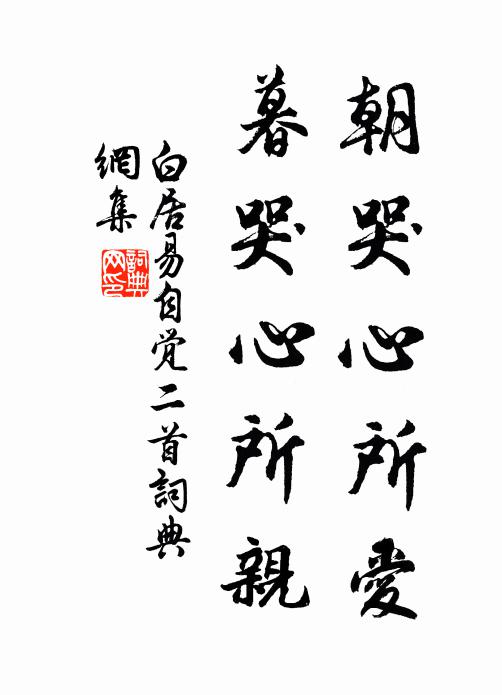 朝哭心所愛
暮哭心所親
白居易自覚二首詞典
網集
詞典
网印